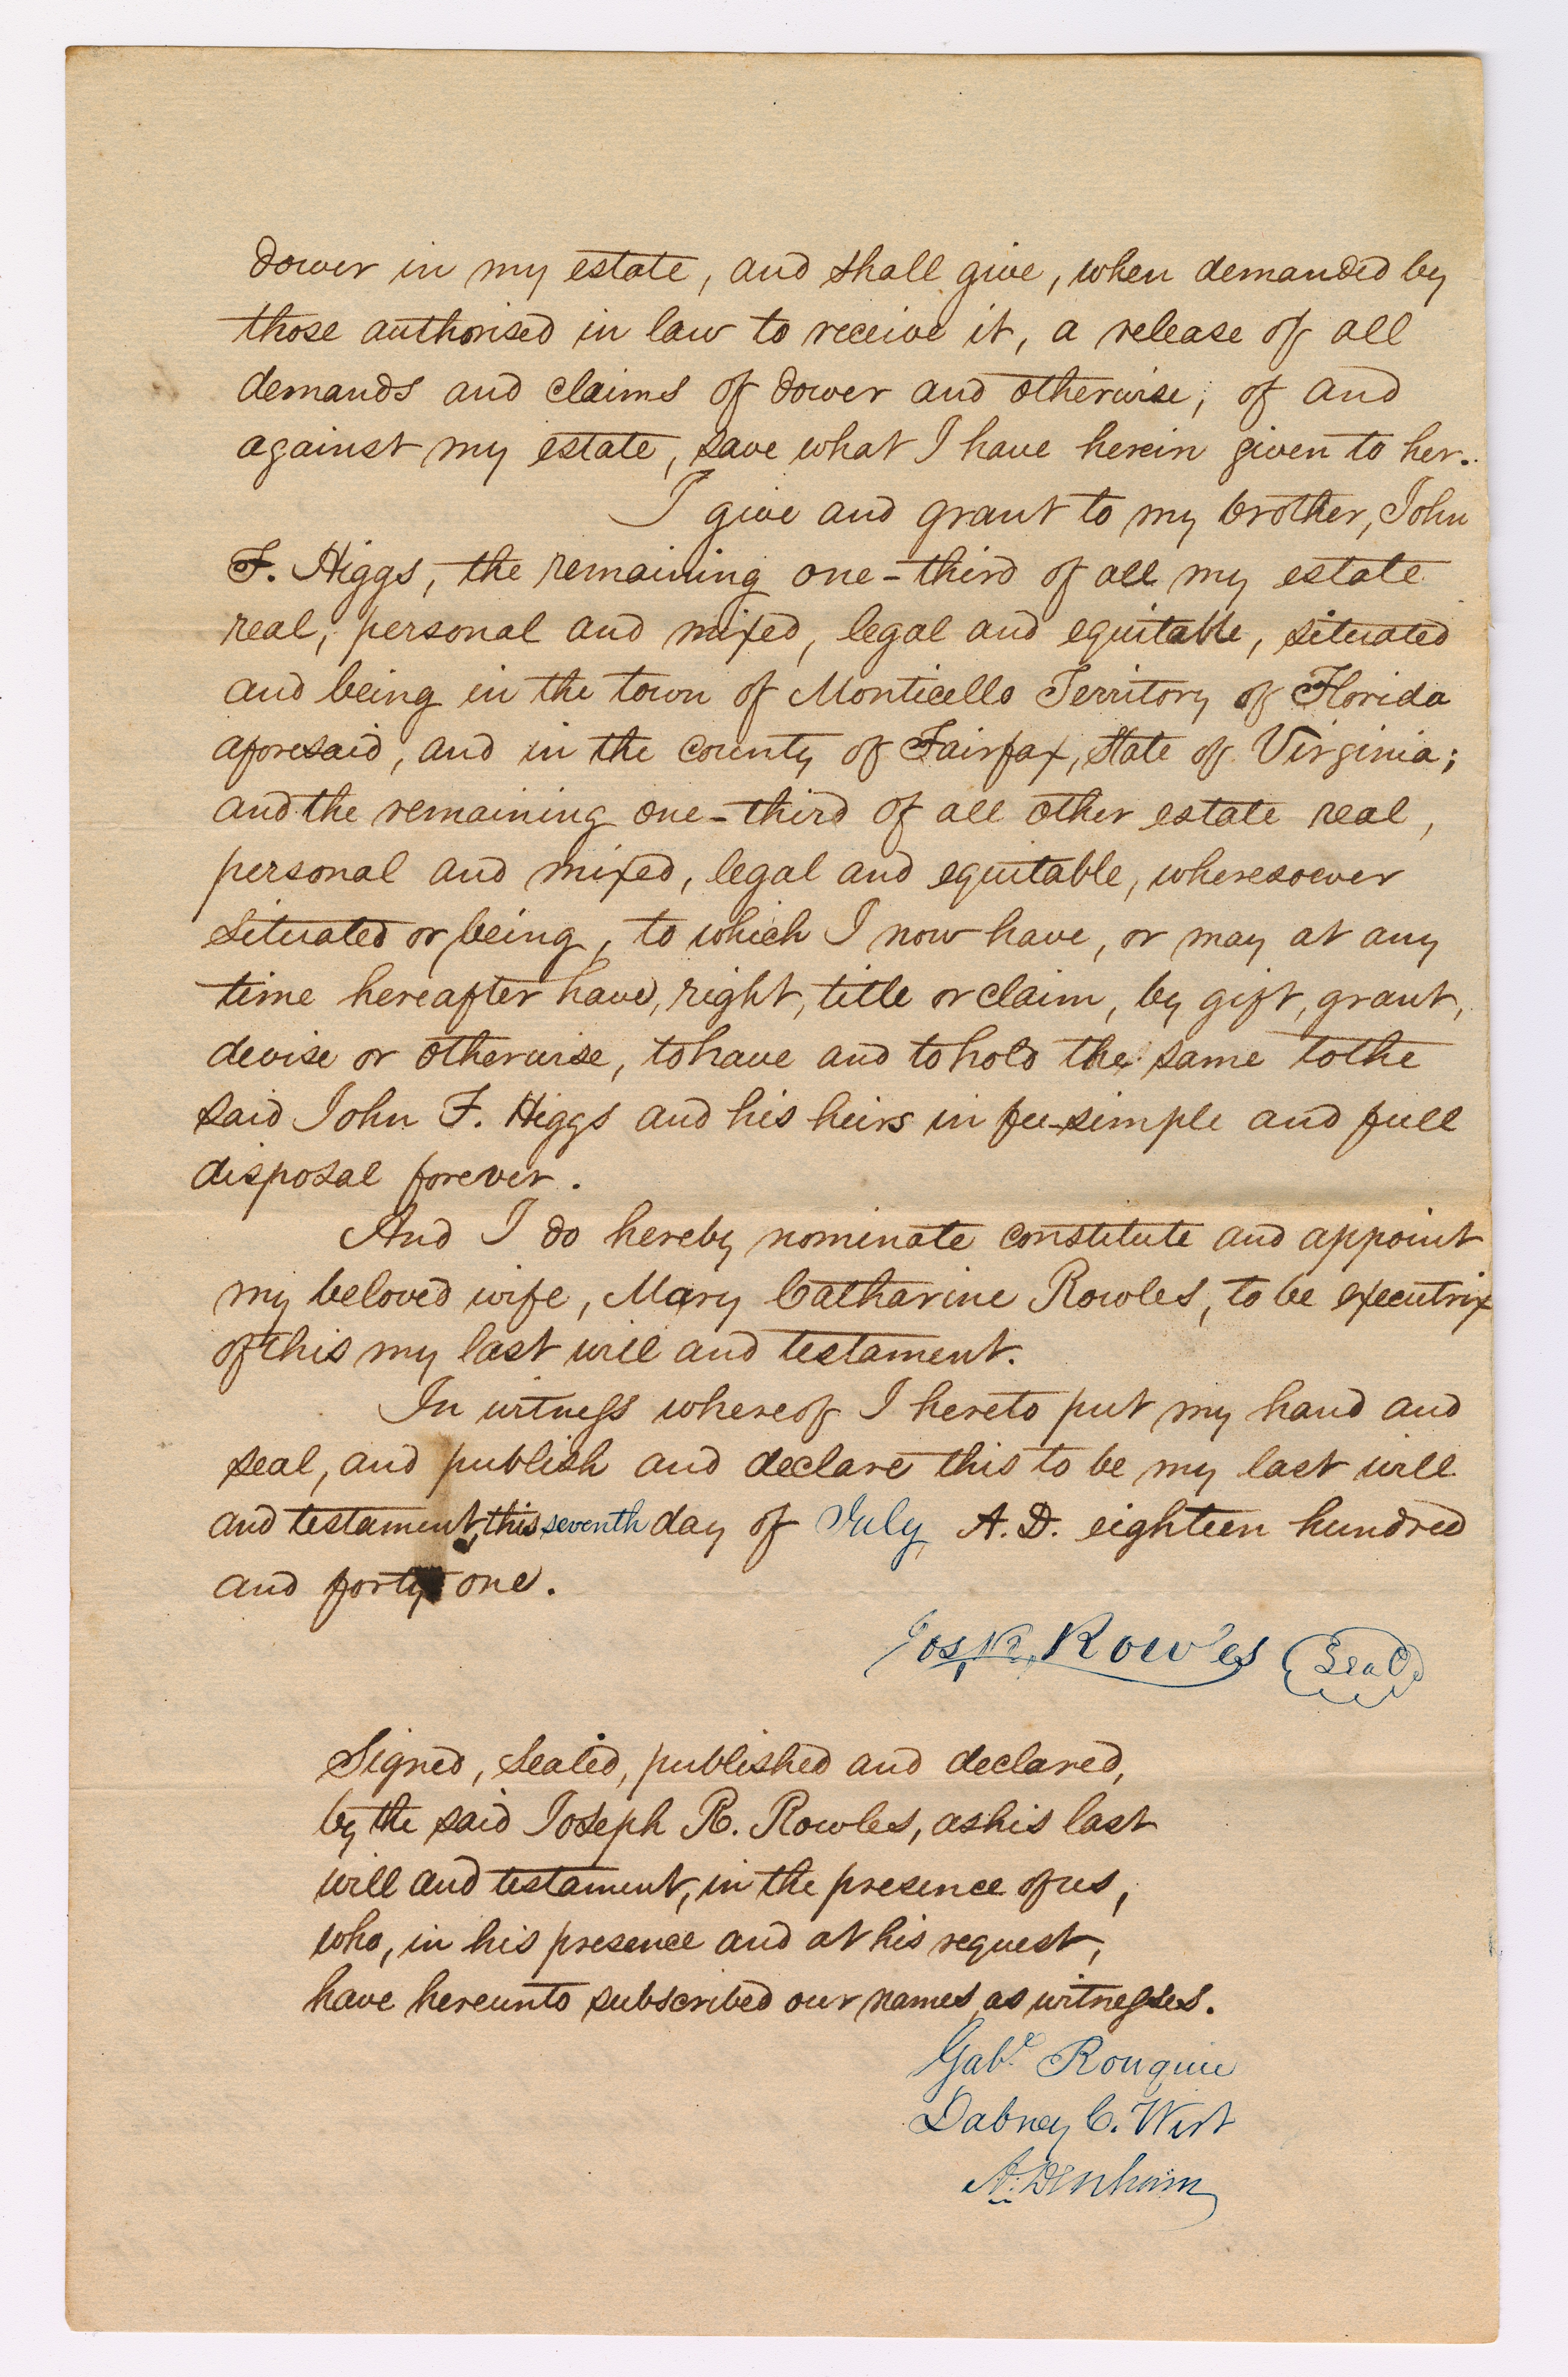 dower in my estate, and shall give, when demanded by
those authorised in law to receive it, a release of all
demands and claims of dower and otherwise, of and
against my estate, save what I have herein given to her.
I give and grant to my brother, John
F. Higgs, the remaining one-third of all my estate
real, personal and mixed, legal and equitable, situated
and being in the town of Monticello Territory of Florida
aforesaid, and in the county of Fairfax, State of Virginia;
and the remaining one-third of all other estate real,
personal and mixed, legal and equitable, wheresoever
situated or being, to which I now have, or may at any
time hereafter have, right, title or claim, by gift, grant,
devise or otherwise, to have and to hold the same to the
said John F. Higgs and his heirs in fee-simple and full
disposal forever.
And I do hereby nominate constitute and appoint
my beloved wife, Mary Catharine Rowles, to be executrix
of this my last will and testament.
In witness whereof I hereto put my hand and
seal, and publish and declare this to be my last will
and testament, this seventh day of July A.D. eighteen hundred
and forty one.
Jos, R, Rowles Seal
Signed, sealed, published and declared,
by the said Joseph R. Rowles, as his last
will and testament, in the presence of us,
who, in his presence and at his request,
have hereunto subscribed our names as witnesses.
Gabl. Rouquie
Dabney C. Wirt
A. Denham